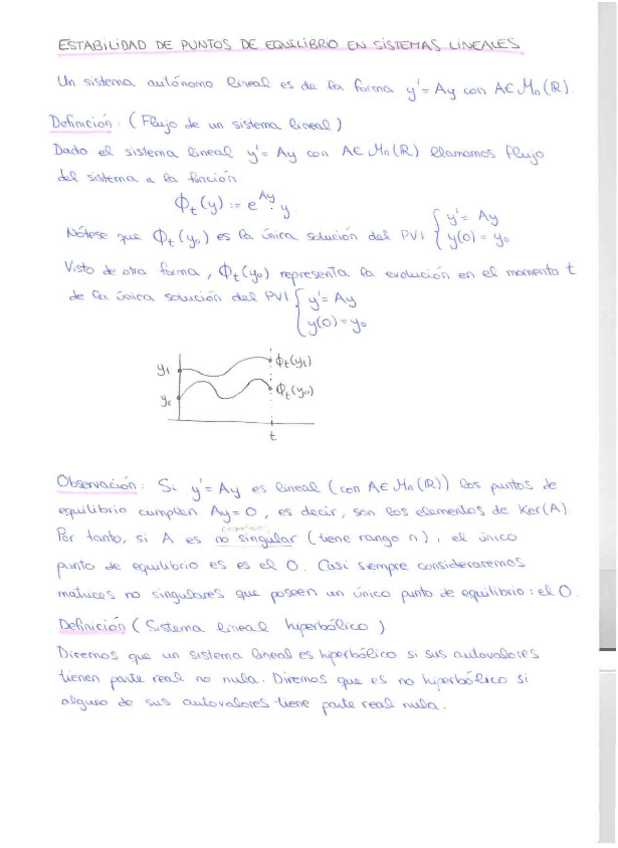 ESTABILIDAD DE PUNTOS DE EQUILIBRIO EN SISTEMAS LINEALES
Un sistema autónomo lineal es de la forma y' = Ay con A∈ℳn(ℝ).
Definición: (Flujo de un sistema lineal)
Dado el sistema lineal y' = Ay con A∈ℳn(ℝ) llamamos flujo
del sistema a la función
ϕt(y) := e^{Ay}·y
Nótese que ϕt(y0) es la única solución del PVI { y' = Ay
y(0) = y0
Visto de otra forma, ϕt(y0) representa la evolución en el momento t
de la única solución del PVI { y' = Ay
y(0) = y0
y1 ϕt(y1)
y0 ϕt(y0)
t
Observación: Si y' = Ay es lineal (con A∈ℳn(ℝ)) los puntos de
equilibrio cumplen Ay = 0, es decir, son los elementos de Ker(A).
Por tanto, si A es no singular (tiene rango n), el único
punto de equilibrio es es el 0. Casi siempre consideraremos
matrices no singulares que poseen un único punto de equilibrio: el 0.
Definición (Sistema lineal hiperbólico)
Diremos que un sistema lineal es hiperbólico si sus autovalores
tienen parte real no nula. Diremos que es no hiperbólico si
alguno de sus autovalores tiene parte real nula.